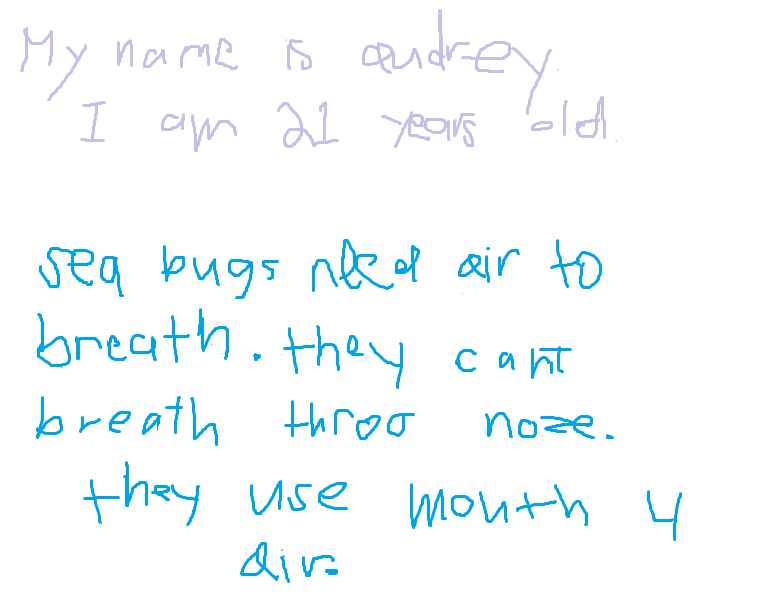 My name is audrey.
I am 21 years old.
sea bugs need air to
breath. they cant
breath throo noze.
they use mouth 4
air.